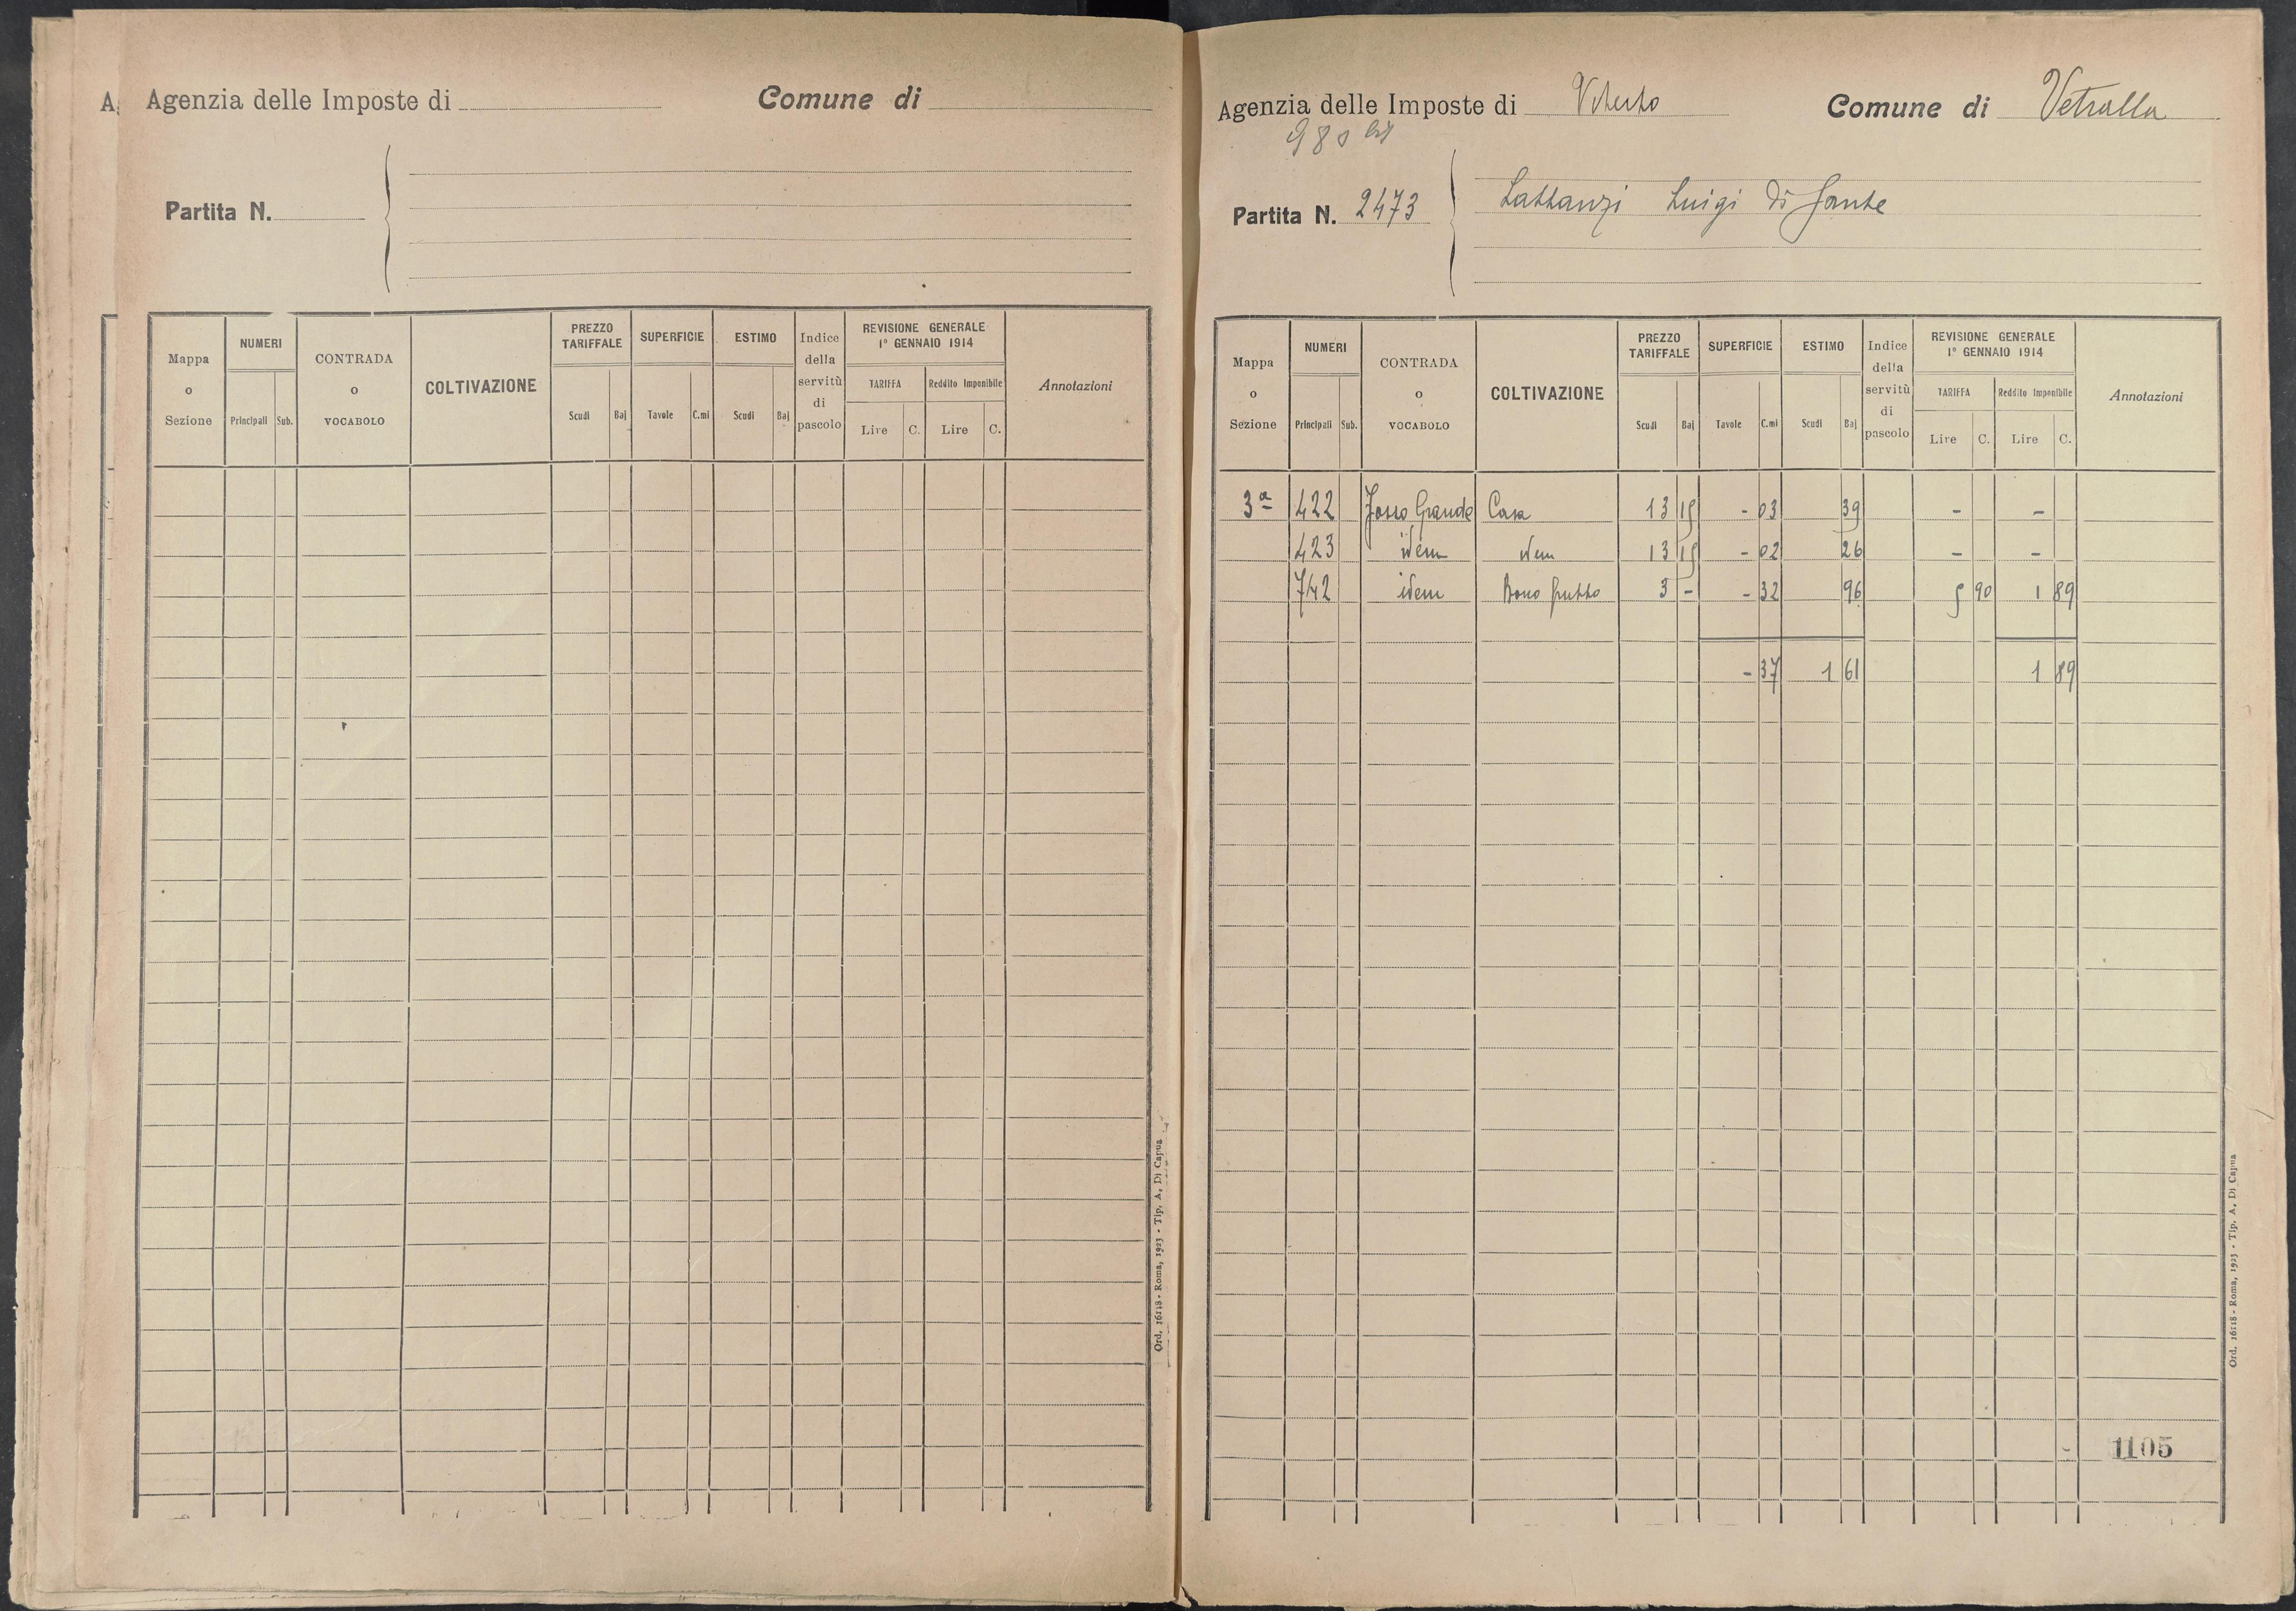 A. Agenzia delle Imposte di
Comune di
Partita N.
Mappa o Sezione
NUMERI
Principali Sub.
CONTRADA o VOCABOLO
COLTIVAZIONE
PREZZO TARIFFALE
Scudi Baj
SUPERFICIE
Tavole C.mi
ESTIMO
Scudi Baj
Indice della servitù di pascolo
REVISIONE GENERALE
1° GENNAIO 1914
TARIFFA
Lire C.
Reddito Imponibile
Lire C.
Annotazioni
Ord. 16118 - Roma, 1923 - Tip. A. Di Capua
Agenzia delle Imposte di Viterbo
Comune di Vetralla
980 bis
Partita N. 2473
Lattanzi Luigi di Sante
Mappa o Sezione
NUMERI
Principali Sub.
CONTRADA o VOCABOLO
COLTIVAZIONE
PREZZO TARIFFALE
Scudi Baj
SUPERFICIE
Tavole C.mi
ESTIMO
Scudi Baj
Indice della servitù di pascolo
REVISIONE GENERALE
1° GENNAIO 1914
TARIFFA
Lire C.
Reddito Imponibile
Lire C.
Annotazioni
3ª 422 Fosso Grande Casa 13 15 - 03 39 - -
423 idem idem 13 15 - 02 26 - -
742 idem 3 - - 32 96 5 90 1 89
- 37 1 61 1 89
1105
Ord. 16118 - Roma, 1923 - Tip. A. Di Capua